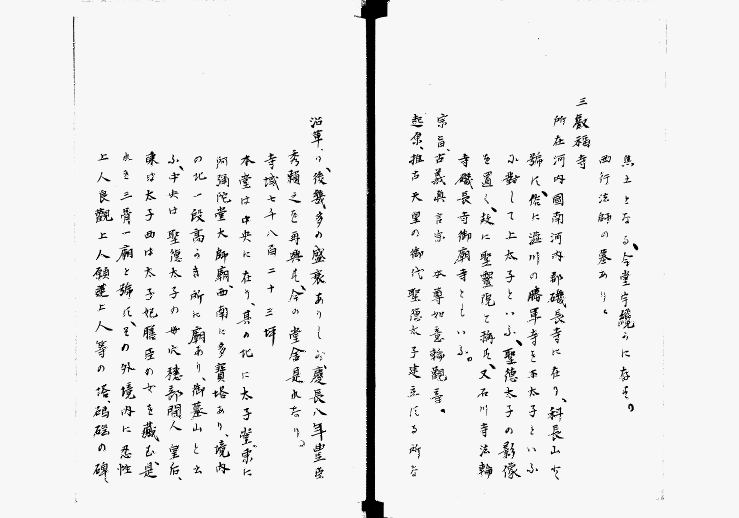 焦土となる、今堂宇纔かに存す。
西行法師の墓あり。
三 叡福寺
所在 河内國南河内郡磯長寺に在り、科長山と
號す、俗に澁川の勝軍寺を下太子といふ
に對して上太子といふ、聖德太子の影像
を置く、故に聖靈院と稱す、又石川寺法輪
寺磯長寺御廟寺ともいふ。
宗旨、古義眞言宗 本尊如意輪觀音。
起原、推古天皇の御代聖德太子建立する所な
沿革り、後幾多の盛衰ありしが、慶長八年豊臣
秀賴之を再興す、今の堂舍是れなり。
寺域七千八百二十三坪
本堂は中央に在り、其の北に太子堂、東に
阿彌陀堂大師廟、西南に多寶塔あり、境内
の北一段高き所に廟あり、御墓山と云
ふ、中央は聖德太子の母穴穗部間人皇后、
東は太子西は太子妃膳臣の女を藏む、是
れを三骨一廟と號す、其の外境内に忍性
上人良觀上人願蓮上人等の塔、碼碯の碑、